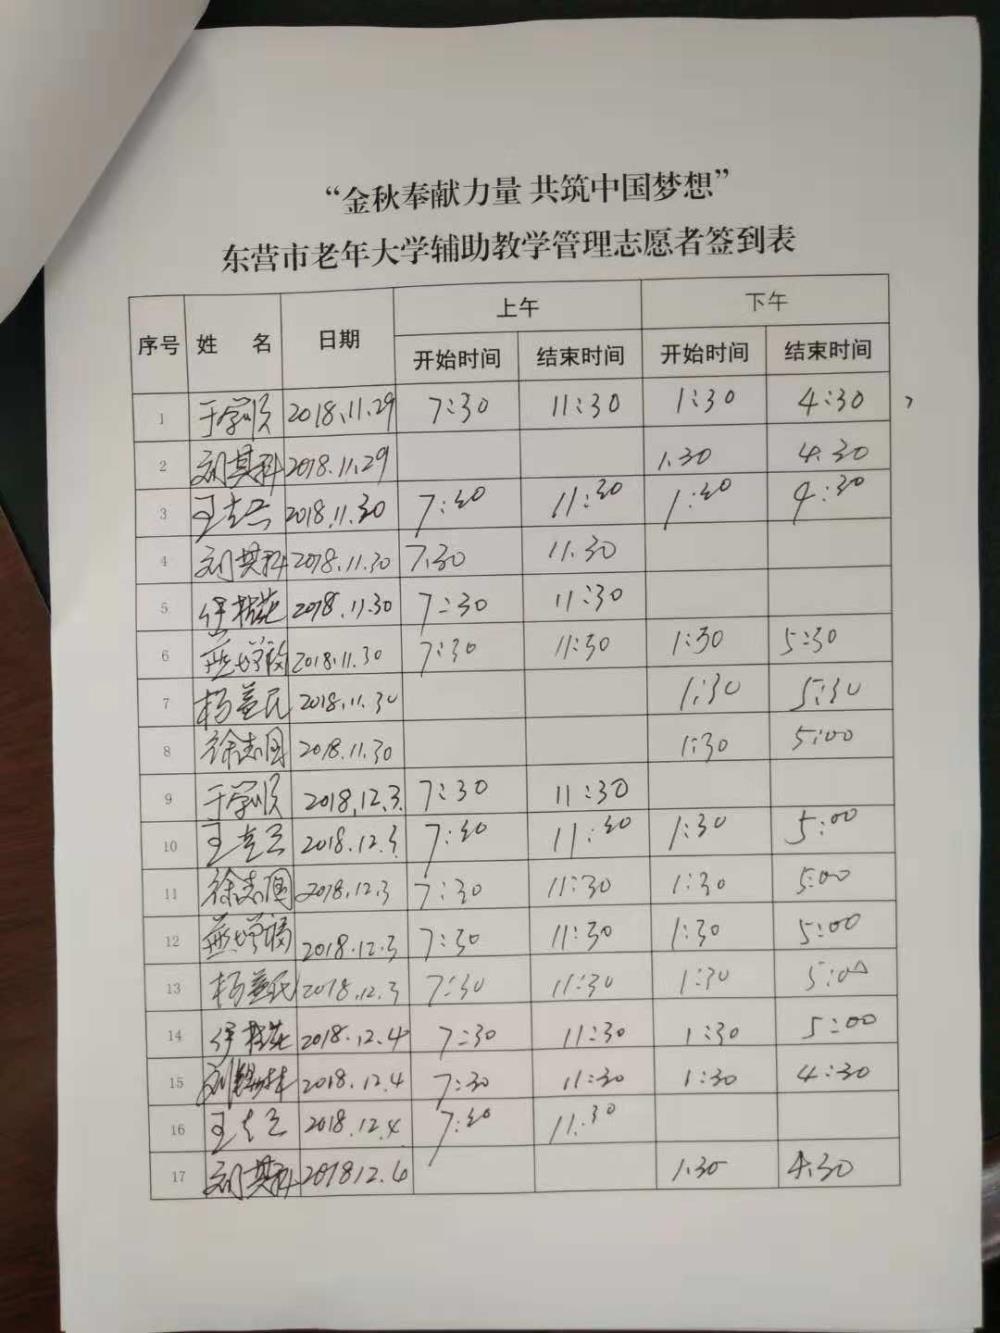 “金秋奉献力量 共筑中国梦想”
东营市老年大学辅助教学管理志愿者签到表
序号 姓 名 日期 上午 下午
开始时间 结束时间 开始时间 结束时间
1 于学顺 2018.11.29 7:30 11:30 1:30 4:30
2 刘其科 2018.11.29 1.30 4.30
3 王 2018.11.30 7:30 11:30 1:30 4:30
4 刘其科 2018.11.30 7.30 11.30
5 2018.11.30 7:30 11:30
6 燕增 2018.11.30 7:30 11:30 1:30 5:30
7 杨益民 2018.11.30 1:30 5:30
8 徐志国 2018.11.30 1:30 5:00
9 于学顺 2018.12.3 7:30 11:30
10 王 2018.12.3 7:30 11:30 1:30 5:00
11 徐志国 2018.12.3 7:30 11:30 1:30 5:00
12 燕增 2018.12.3 7:30 11:30 1:30 5:00
13 杨益民 2018.12.3 7:30 11:30 1:30 5:00
14 2018.12.4 7:30 11:30 1:30 5:00
15 刘 2018.12.4 7:30 11:30 1:30 4:30
16 王 2018.12.4 7:30 11.30
17 刘其科 201812.4 1.30 4.30